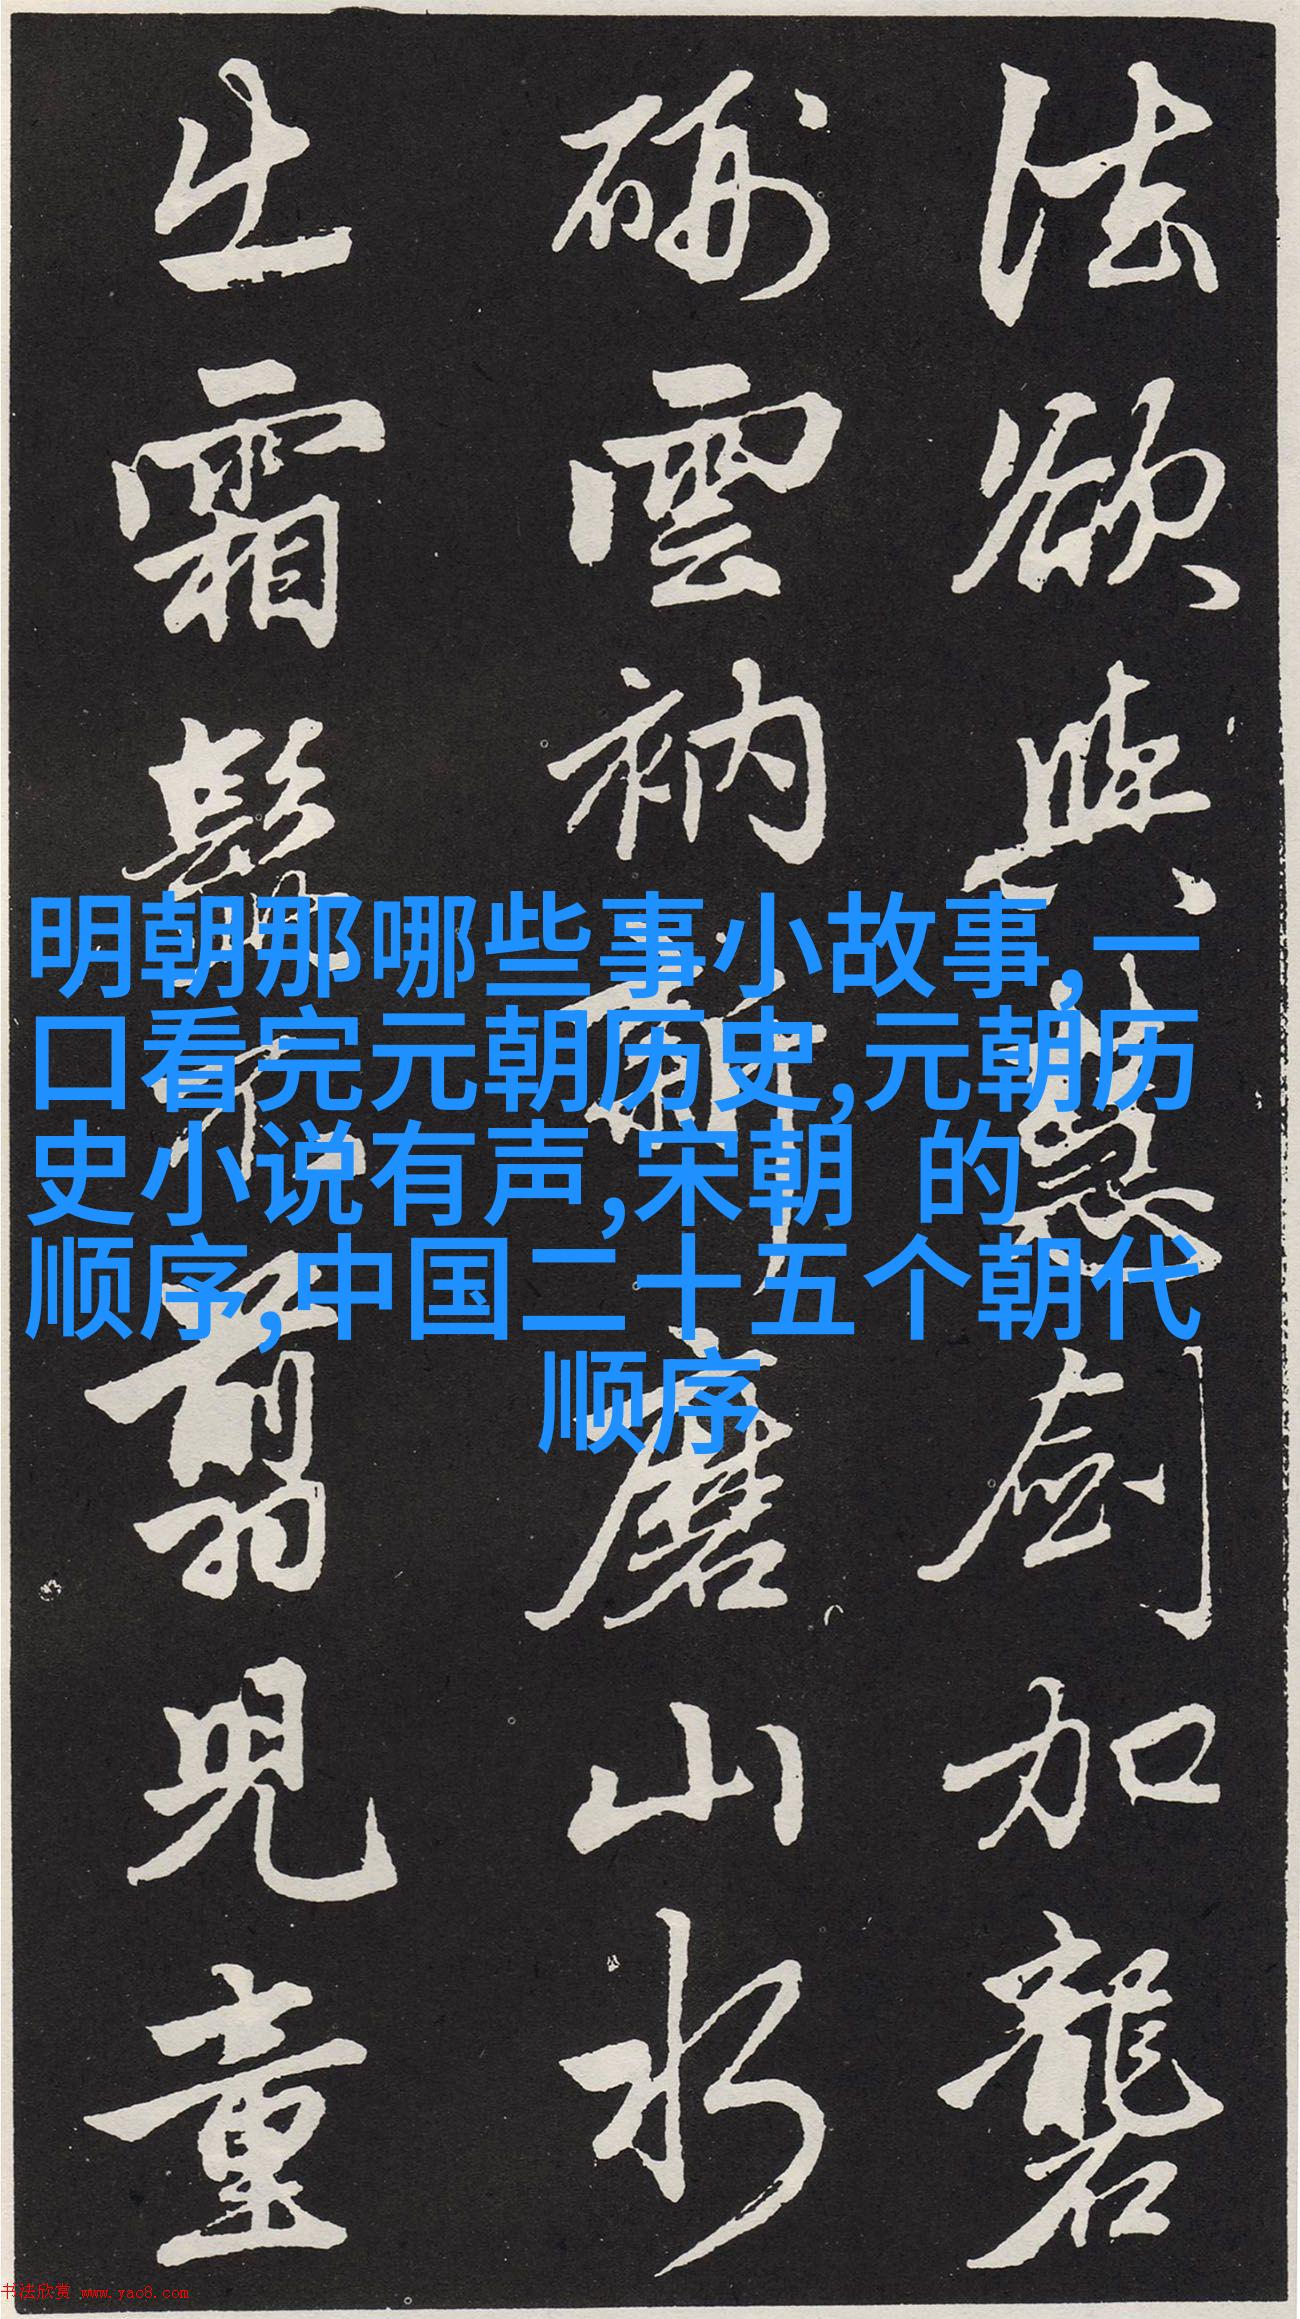 法欲與慧劍加礱
硎雲衲新磨山水
出霜髭不翦兒童
明朝那哪些事小故事,一
口看完元朝历史,元朝历
史小说有声,宋朝 的
顺序,中国二十五个朝代
顺序
书法欣赏 www.yac8.com